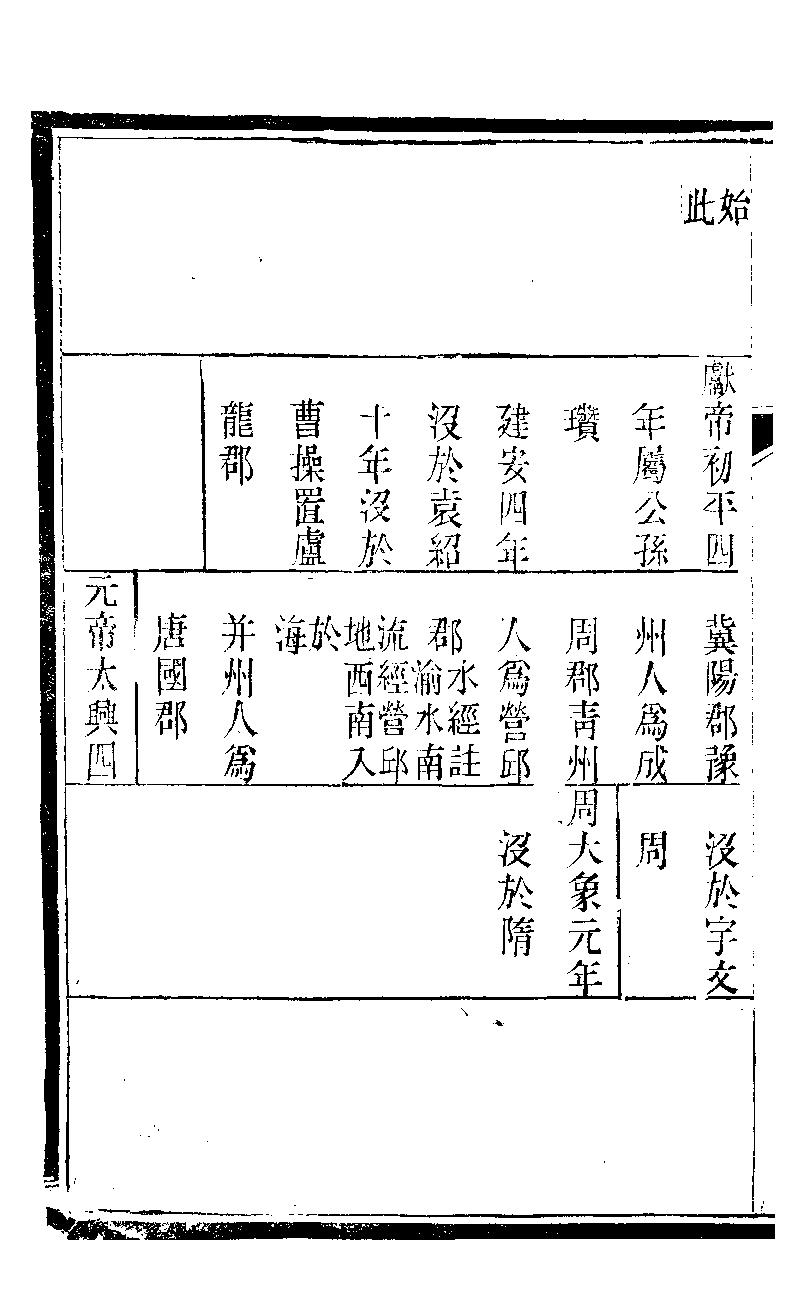 始
此
獻帝初平四
年屬公孫
瓚
建安四年
沒於袁紹
十年沒於
曹操置盧
龍郡
冀陽郡豫
州人爲成
周郡靑州
人爲營邱
郡水經註
渝水南
流經營邱
地西南入
於
海
并州人爲
唐國郡
元帝太興四
沒於宇文
周
周大象元年
沒於隋